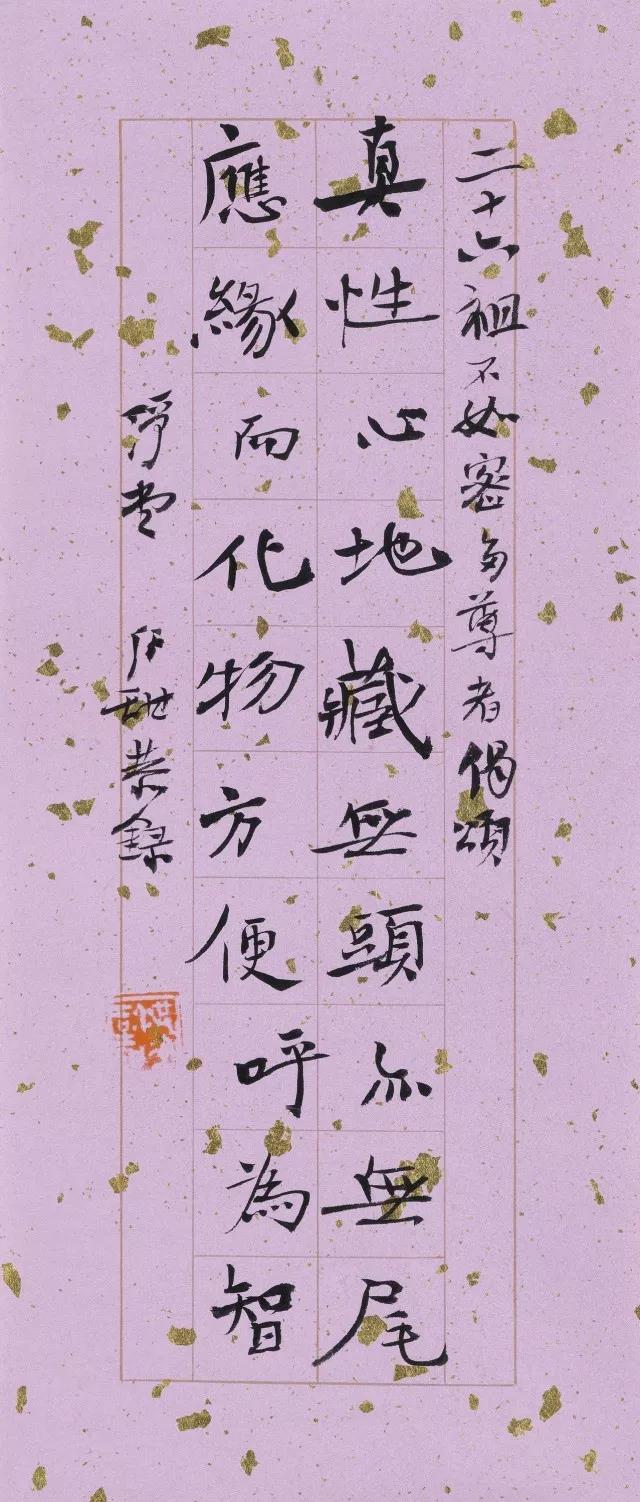 二十六祖不如密多尊者偈頌
真性心地藏無頭亦無尾
應緣而化物方便呼為智
甜恭錄